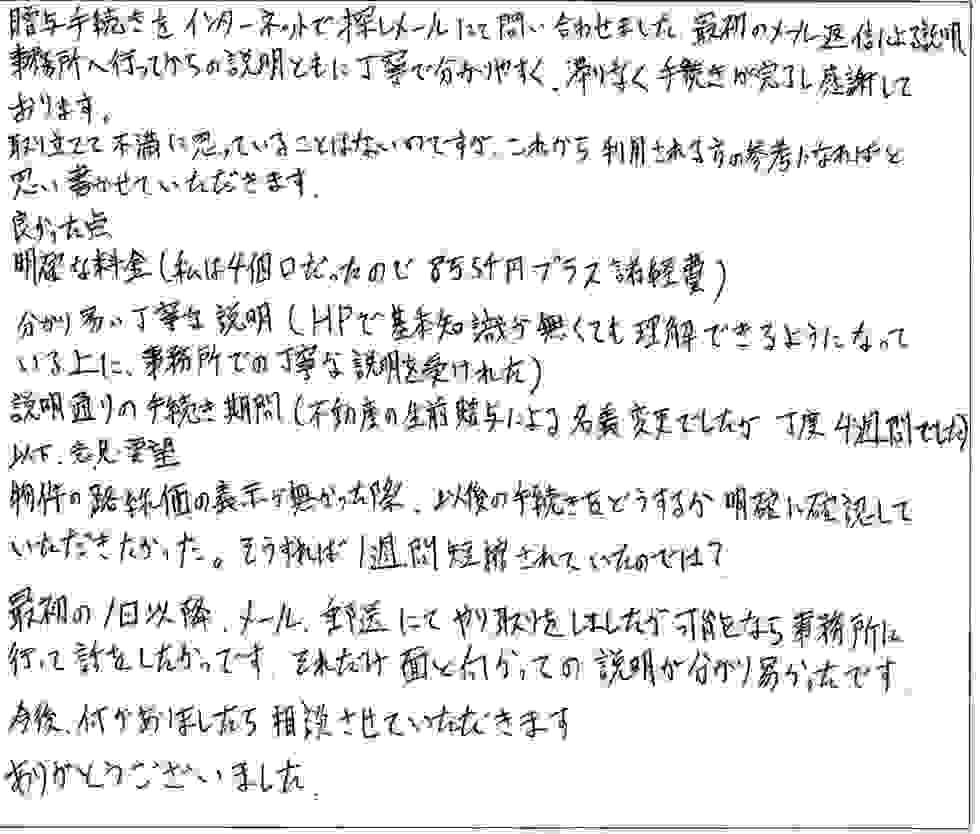 贈与手続きをインターネットで探しメールにて問い合わせました。最初のメール返信による説明
事務所へ行ってからの説明ともに丁寧で分かりやすく、滞りなく手続きが完了し感謝して
おります。
取り立てて不満に思っていることはないのですが、これから利用される方の参考になればと
思い書かせていただきます。
良かった点
明確な料金(私は4個口だったので8万5千円プラス諸経費)
分かり易い丁寧な説明(HPで基本知識が無くても理解できるようになって
いる上に、事務所での丁寧な説明を受けれた)
説明通りの手続き期間(不動産の生前贈与による名義変更でしたが丁度4週間でした)
以下、意見・要望
物件の路線価の表示が無かった際、以後の手続きをどうするか明確に確認して
いただきたかった。そうすれば1週間短縮されていたのでは?
最初の1日以降、メール、郵送にてやり取りをしましたが可能なら事務所に
行って話をしたかったです。それだけ面と向かっての説明が分かり易かったです。
今後、何かありましたら相談させていただきます
ありがとうございました。